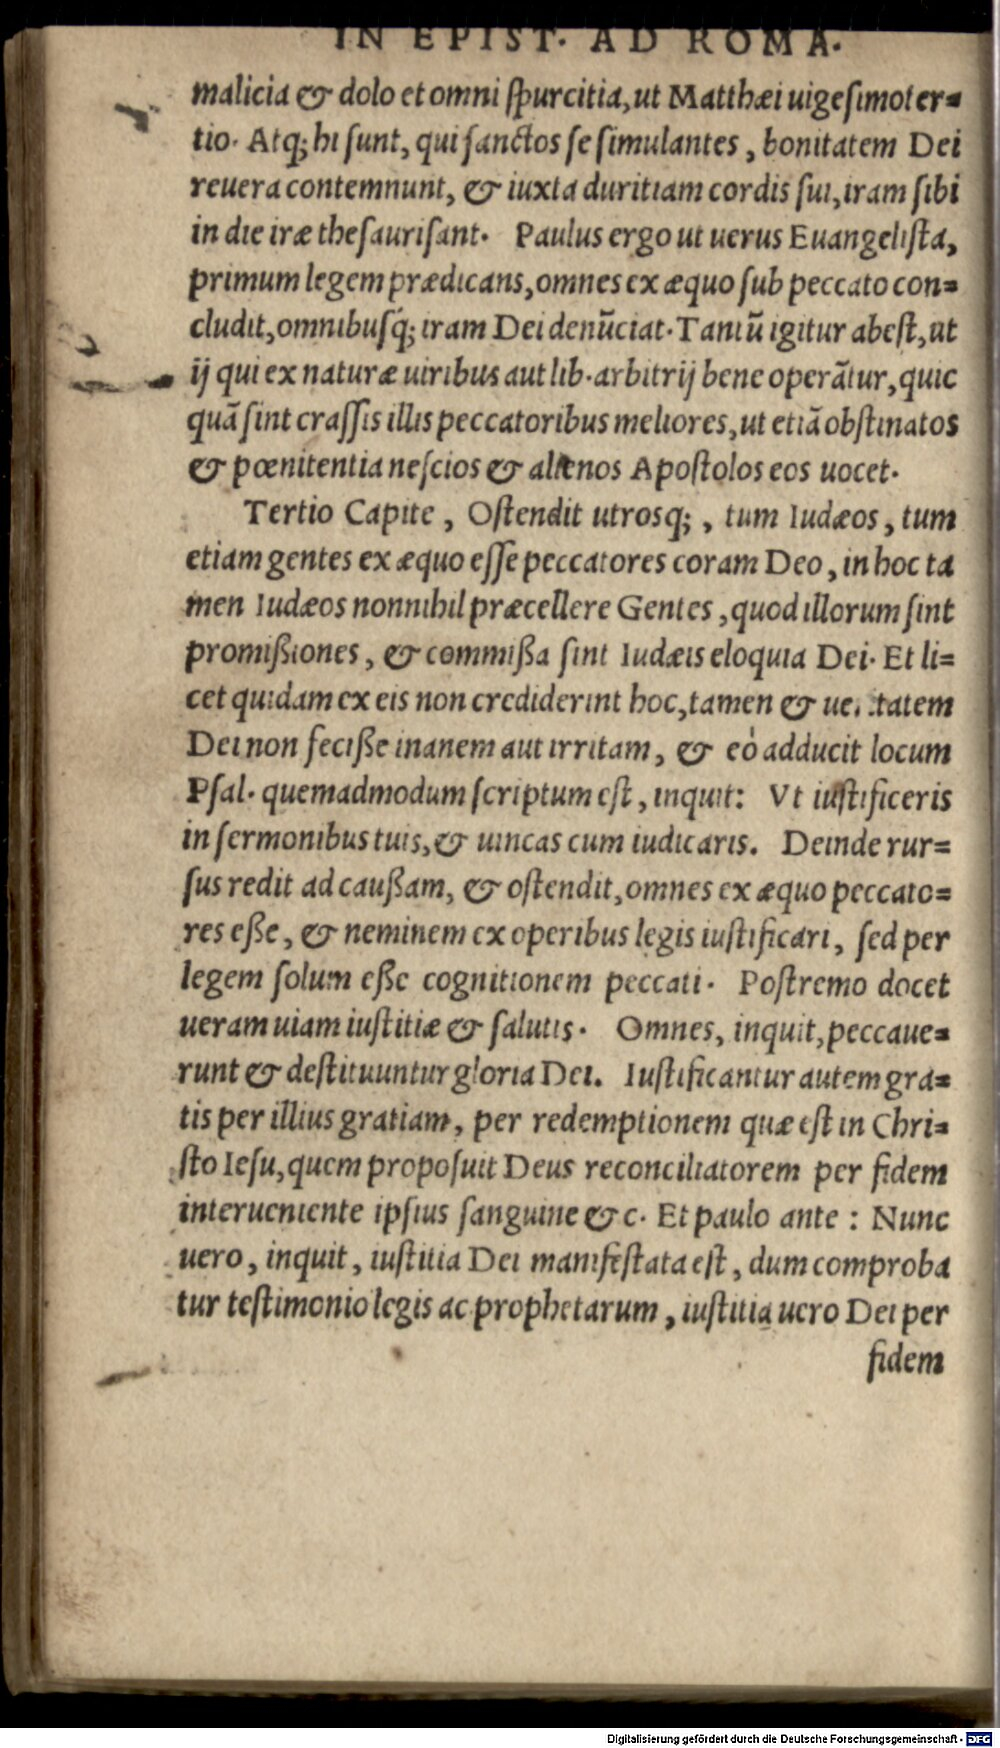 IN EPIST. AD ROMA.
malicia & dolo et omni ſpurcitia, ut Matthæi uigeſimoter=
tio. Atq; hi ſunt, qui ſanctos ſe ſimulantes, bonitatem Dei
reuera contemnunt, & iuxta duritiam cordis ſui, iram ſibi
in die iræ theſauriſant. Paulus ergo ut uerus Euangeliſta,
primum legem prædicans, omnes ex æquo ſub peccato con=
cludit, omnibuſq́; iram Dei denũciat. Tantũ igitur abeſt, ut
ij qui ex naturæ uiribus aut lib. arbitrij bene operãtur, quic
quã ſint craſſis illis peccatoribus meliores, ut etiã obſtinatos
& pœnitentia neſcios & alienos Apoſtolos eos uocet.
Tertio Capite, Oſtendit utrosq;, tum Iudæos, tum
etiam gentes ex æquo eſſe peccatores coram Deo, in hoc ta
men Iudæos nonnihil præcellere Gentes, quod illorum ſint
promißiones, & commißa ſint Iudæis eloquia Dei. Et li=
cet quidam ex eis non crediderint hoc, tamen & ue. .tatem
Dei non feciße inanem aut irritam, & eò adducit locum
Pſal. quemadmodum ſcriptum eſt, inquit: Vt iuſtificeris
in ſermonibus tuis, & uincas cum iudicaris. Deinde rur=
ſus redit ad caußam, & oſtendit, omnes ex æquo peccato=
res eße, & neminem ex operibus legis iuſtificari, ſed per
legem ſolum eße cognitionem peccati. Poſtremo docet
ueram uiam iuſtitiæ & ſalutis. Omnes, inquit, peccaue=
runt & deſtituuntur gloria Dei. Iuſtificantur autem gra=
tis per illius gratiam, per redemptionem quæ eſt in Chri=
ſto Ieſu, quem propoſuit Deus reconciliatorem per fidem
interueniente ipſius ſanguine & c. Et paulo ante: Nunc
uero, inquit, iuſtitia Dei manifeſtata eſt, dum comproba
tur teſtimonio legis ac prophetarum, iuſtitia uero Dei per
fidem
Digitalisierung gefördert durch die Deutsche Forschungsgemeinschaft - DFG